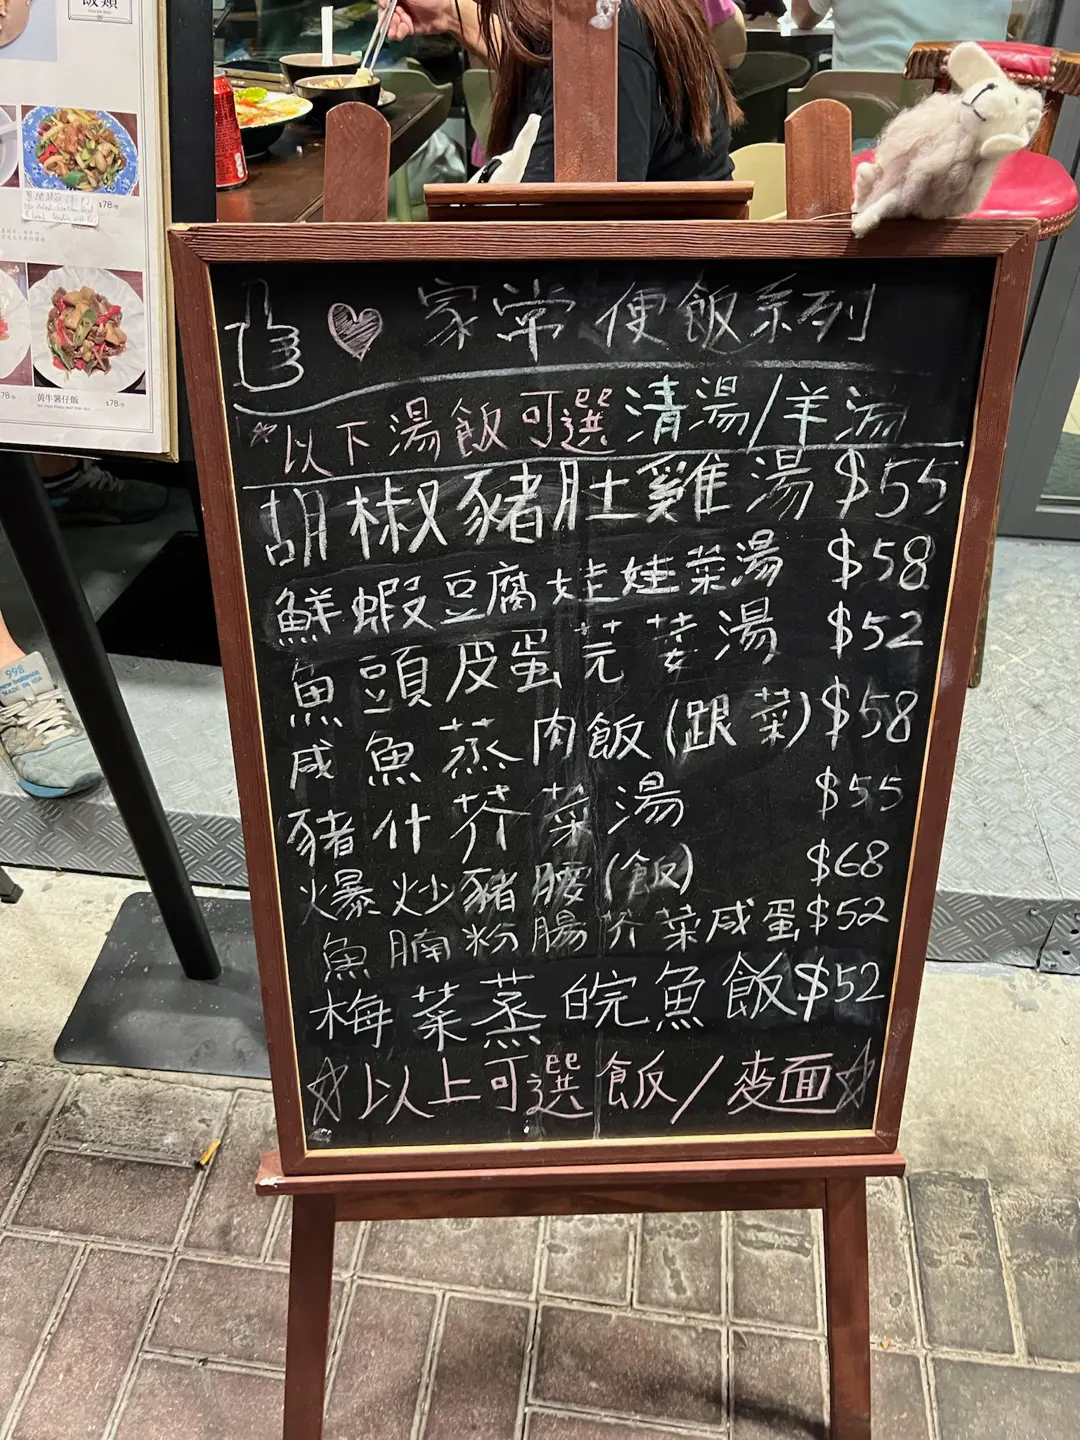 飯類
$78
黃牛薯仔飯
$78
998
new balance
MADE IN USA
家常便飯系列
*以下湯飯可選清湯/羊湯
胡椒豬肚雞湯 $55
鮮蝦豆腐娃娃菜湯 $58
魚頭皮蛋芫荽湯 $52
咸魚蒸肉飯(跟菜) $58
豬什芥菜湯 $55
爆炒豬腰(飯) $68
魚腩粉腸芥菜咸蛋 $52
梅菜蒸皖魚飯 $52
☆以上可選飯/麥面☆